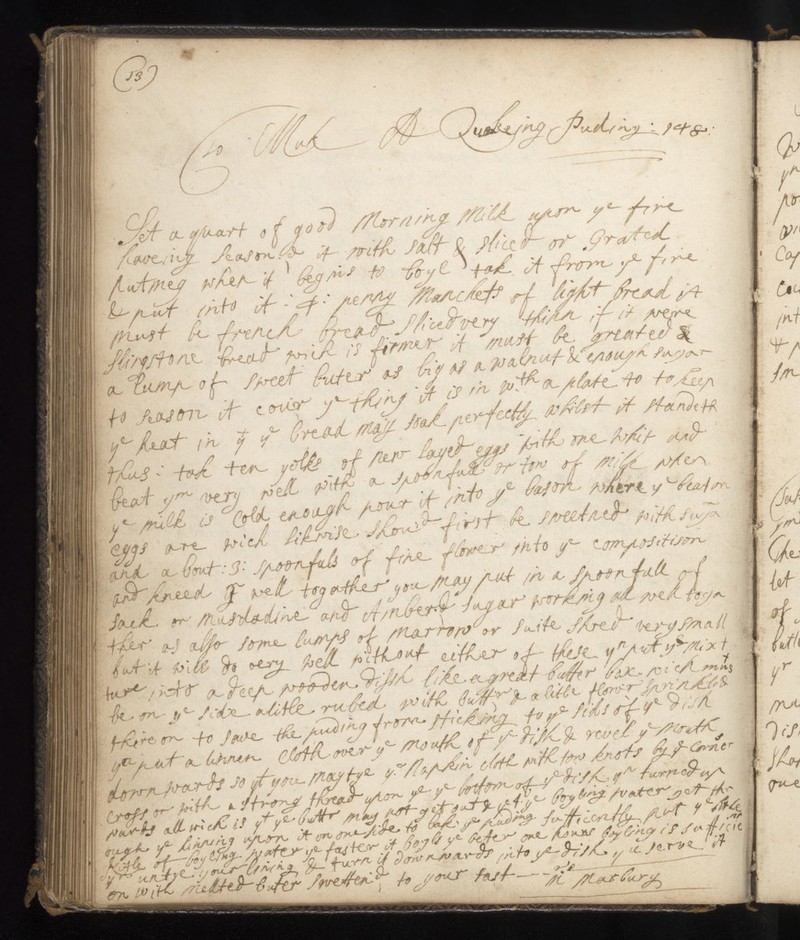 (13)
To Mak A Quakeing Puding : 148 :
Set a quart of good Morning Milk upon ye fire
haveing season'd it with salt & sliced or Grated
Nutmeg when it begins to boyl tak it from ye fire
& put into it : 4 : penny Manchets of light bread it
must be french bread sliced very thinn if it were
a lump of sweet buter as big as a walnut & enough sugar
to season it cover ye thing it is in with a plate to to keep
ye heat in yt ye bread may soak perfectly whilst it standeth
thus : tak ten yolks of new layed eggs with one whit and
beat ym very well with a spoonfull or tow of milk when
ye milk is Cold enough pour it into ye bason where ye beaten
eggs are wich likewise shoud first be sweetned with
and a bout : 3 : spoonfuls of fine flower into ye composition
and kneed it well togather you may put in a spoonfull of
sack or Muscladine and Amberd sugar working all well toga
ther as also some lumps of marrow or suite shred very small
but it will do very well without either of these yn put ys mixt
ture into a deep wooden dish like a great butter box wich must
be on ye side a litle rubed with buttr & a litle flower sprinkled
thereon to save the puding from sticking to ye sids of ye dish
yn put a linnen Cloth over ye mouth of ye dish & ye mouth
downwards so yt you may tye ye Napkin cloth with tow knots by ye corners
Cross or with a strong thread upon ye bottom of ye dish yn turned up
wards all wich is yt ye buttr may not get out & yet ye boyling water get thr
ough ye linning upon it on one side to bak ye puding sufficently put ye
of boyling water ye faster it boyls ye beter one hours boyling is sufficie
yn untye your lining & turn it downwards into ye dish yu serve it
on with melted buter swettend to your tast —— Marbury